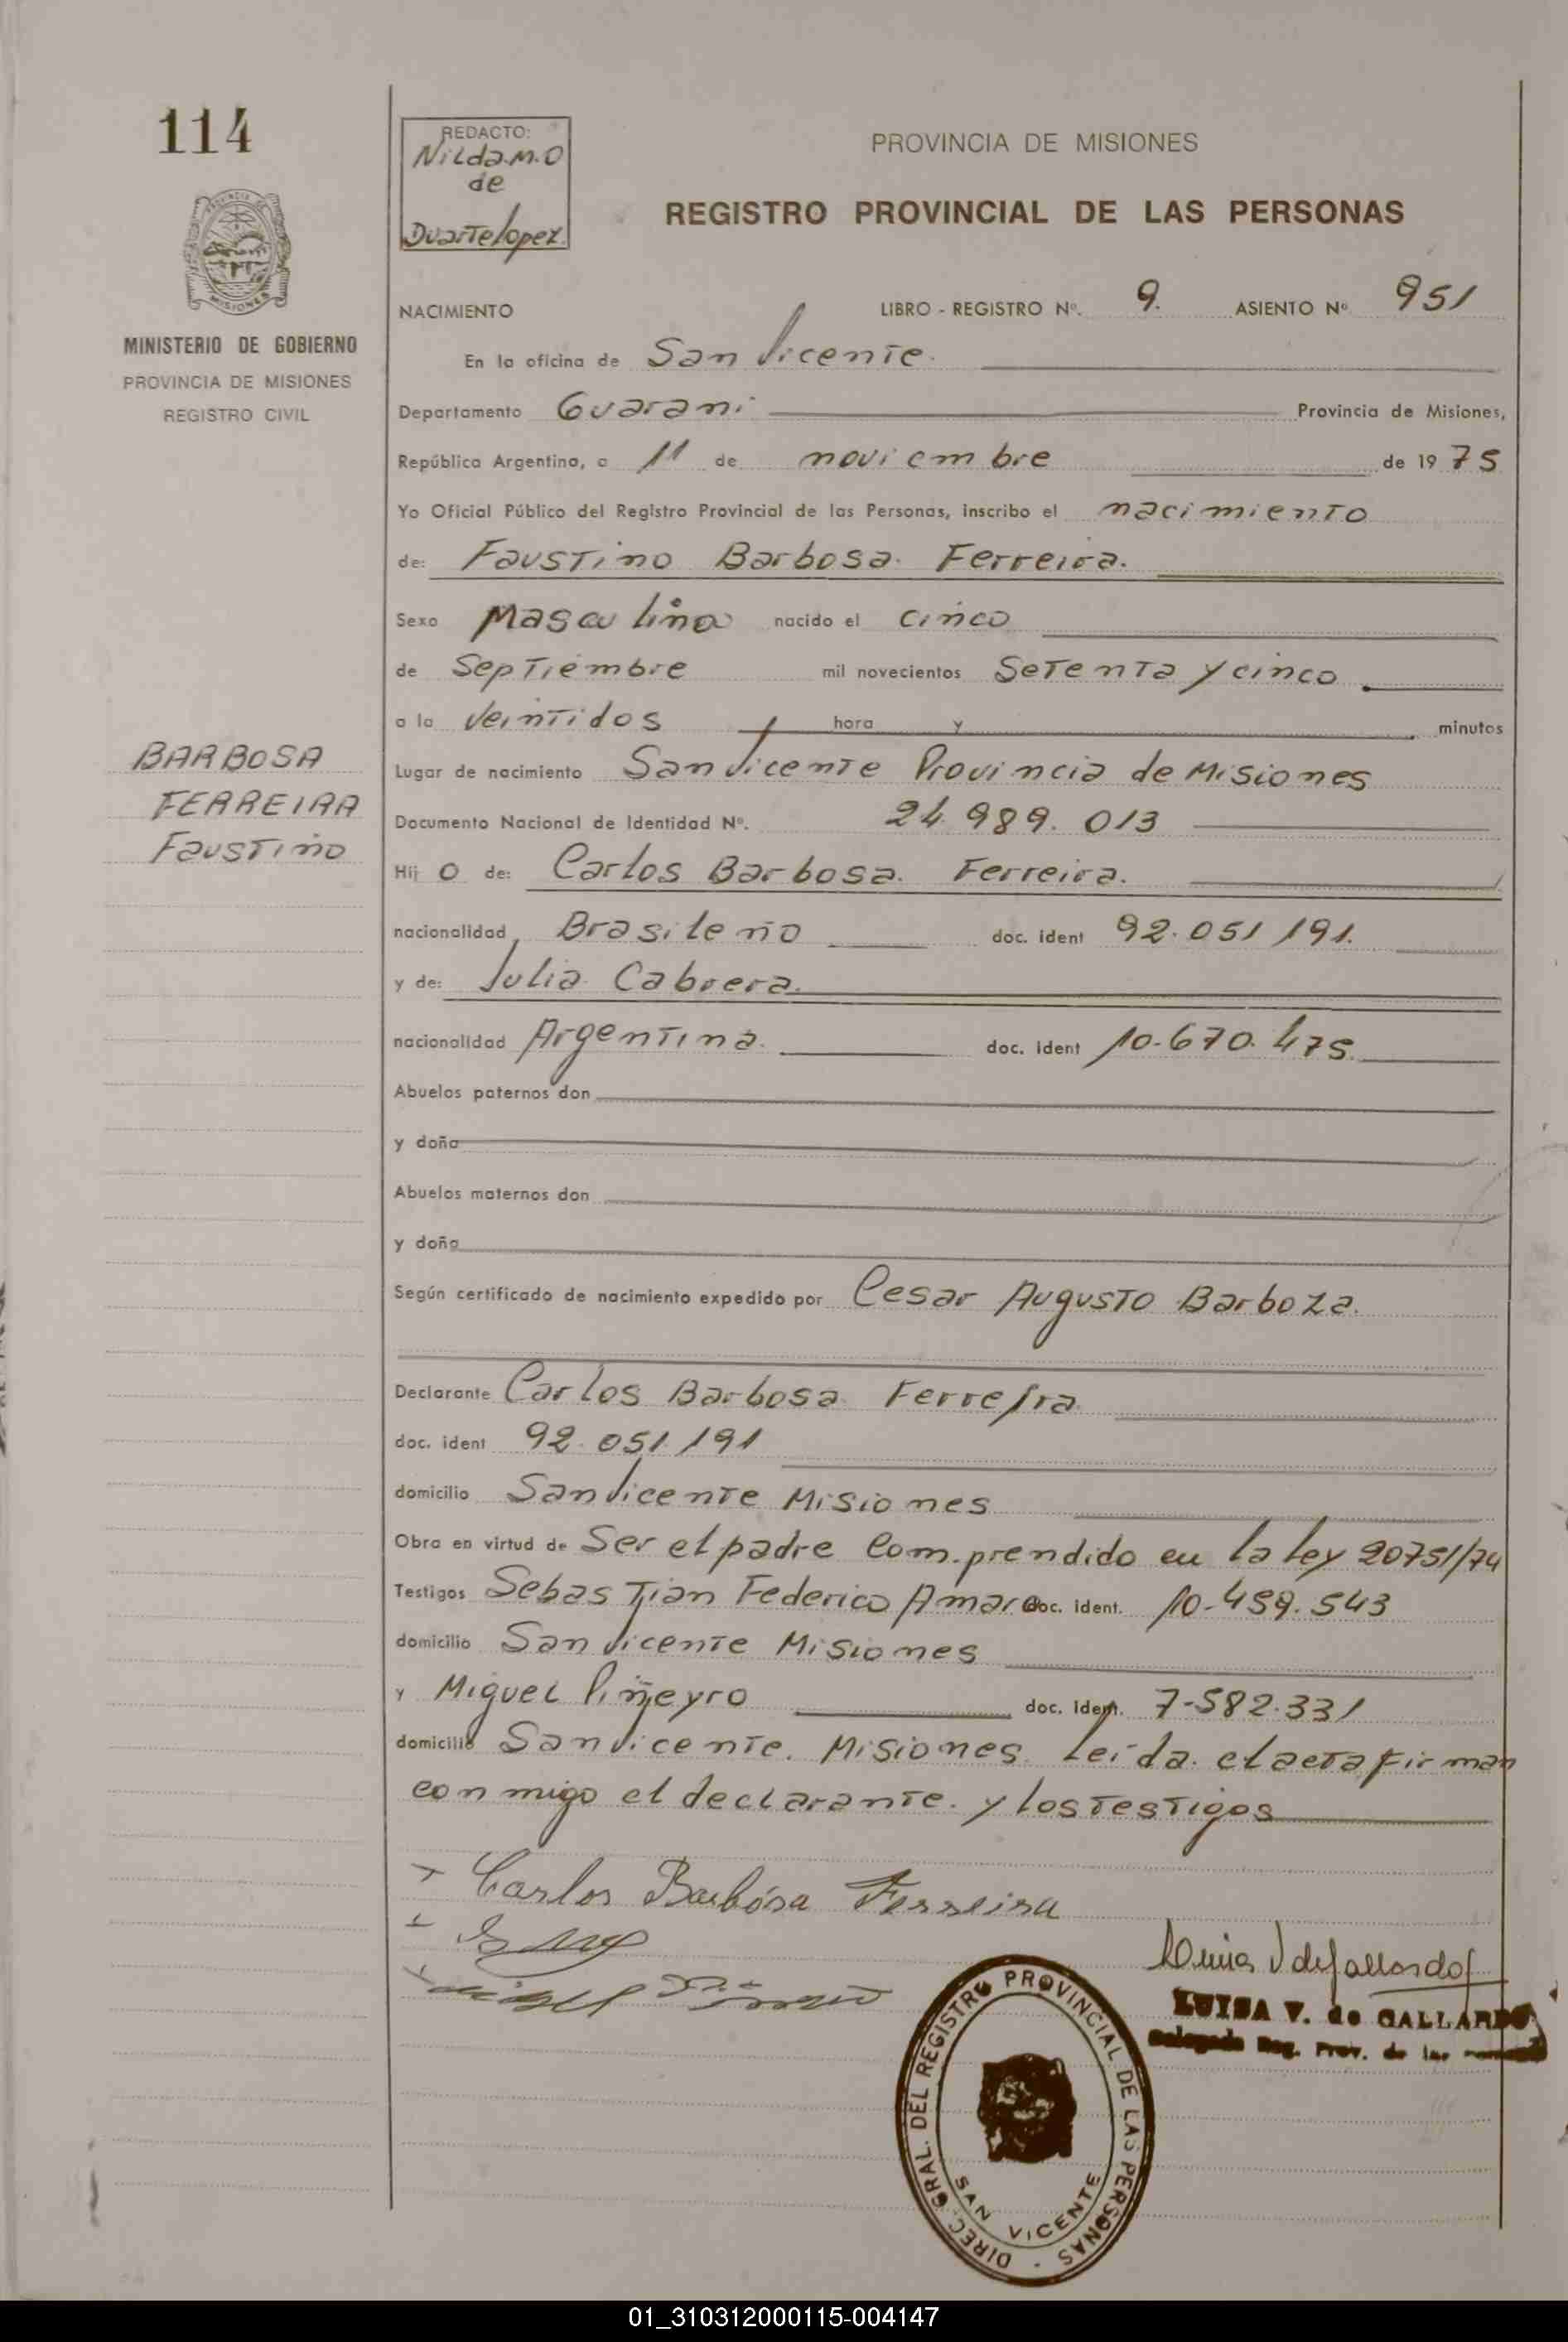 114
REDACTO:
Nilda.M.O
de
Duarte lopez.
PROVINCIA DE MISIONES
REGISTRO PROVINCIAL DE LAS PERSONAS
MISIONES
MINISTERIO DE GOBIERNO
PROVINCIA DE MISIONES
REGISTRO CIVIL
NACIMIENTO LIBRO - REGISTRO Nº. 9. ASIENTO Nº 951
En la oficina de San Vicente.
Departamento Guarani Provincia de Misiones,
República Argentina, a 11 de noviembre de 1975
Yo Oficial Público del Registro Provincial de las Personas, inscribo el nacimiento
de: Faustino Barbosa Ferreira.
Sexo Masculino nacido el cinco
de Septiembre mil novecientos Setenta y cinco
a la veintidos hora y minutos
BARBOSA
FERREIRA
Faustino
Lugar de nacimiento San Vicente Provincia de Misiones
Documento Nacional de Identidad Nº. 24.989.013
Hij O de: Carlos Barbosa Ferreira.
nacionalidad Brasileño doc. ident 92.051.191.
y de: Julia Cabrera.
nacionalidad Argentina. doc. ident 10.670.475.
Abuelos paternos don
y doña
Abuelos maternos don
y doña
Según certificado de nacimiento expedido por Cesar Augusto Barboza.
Declarante Carlos Barbosa Ferreira
doc. ident 92.051.191
domicilio San Vicente Misiones
Obra en virtud de Ser el padre Comprendido en la ley 20751/74
Testigos Sebastian Federico Amaro doc. ident. 10.459.543
domicilio San Vicente Misiones
y Miguel Piñeyro doc. ident. 7.582.331
domicilio San Vicente. Misiones. Leida el acta firman
conmigo el declarante. y los testigos
Carlos Barbósa Ferreira
Luisa V de Gallardo
LUISA V. de GALLARDO
Delegada Reg. Prov. de las
DIREC. GRAL. DEL REGISTRO PROVINCIAL DE LAS PERSONAS -
SAN VICENTE
01_310312000115-004147